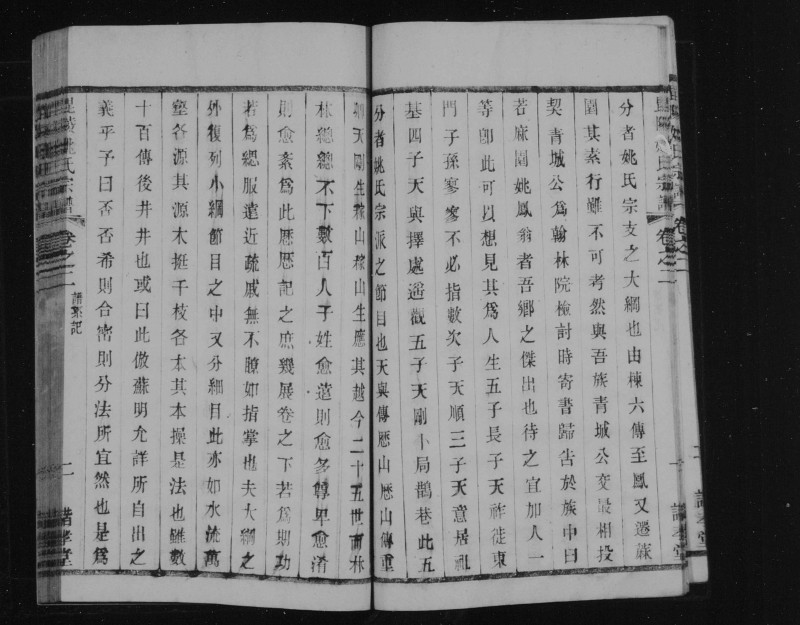 分者姚氏宗支之大綱也由棟六傳至鳳又遷麻
園其素行雖不可考然與吾族青城公交最相投
契青城公爲翰林院檢討時寄書歸告於族中曰
若麻園姚鳳翁者吾鄉之傑出也待之宜加人一
等卽此可以想見其爲人生五子長子天祚徙東
門子孫寥寥不必指數次子天順三子天意居祖
基四子天與擇處遥觀五子天剛卜局鵲巷此五
分者姚氏宗派之節目也天與傳歴山歴山傳重
天剛生稼山稼山生應其越今二十五世而林
林總總不下數百人子姓愈遠則愈多尊卑愈淆
則愈紊爲此歴歴記之庶幾展卷之下若爲期功
若爲緦服遠近疏戚無不瞭如指掌也夫大綱之
外復列小綱節目之中又分細目此亦如水流萬
壑各源其源木挺千枝各本其本操是法也雖數
十百傳後井井也或曰此倣蘇明允詳所自出之
義乎予曰否否希則合密則分法所宜然也是爲
姚氏宗譜
卷之二
譜系記
二